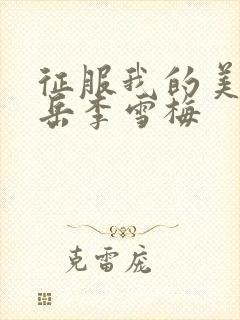 征服我的美
岳李雪梅
克雷庞